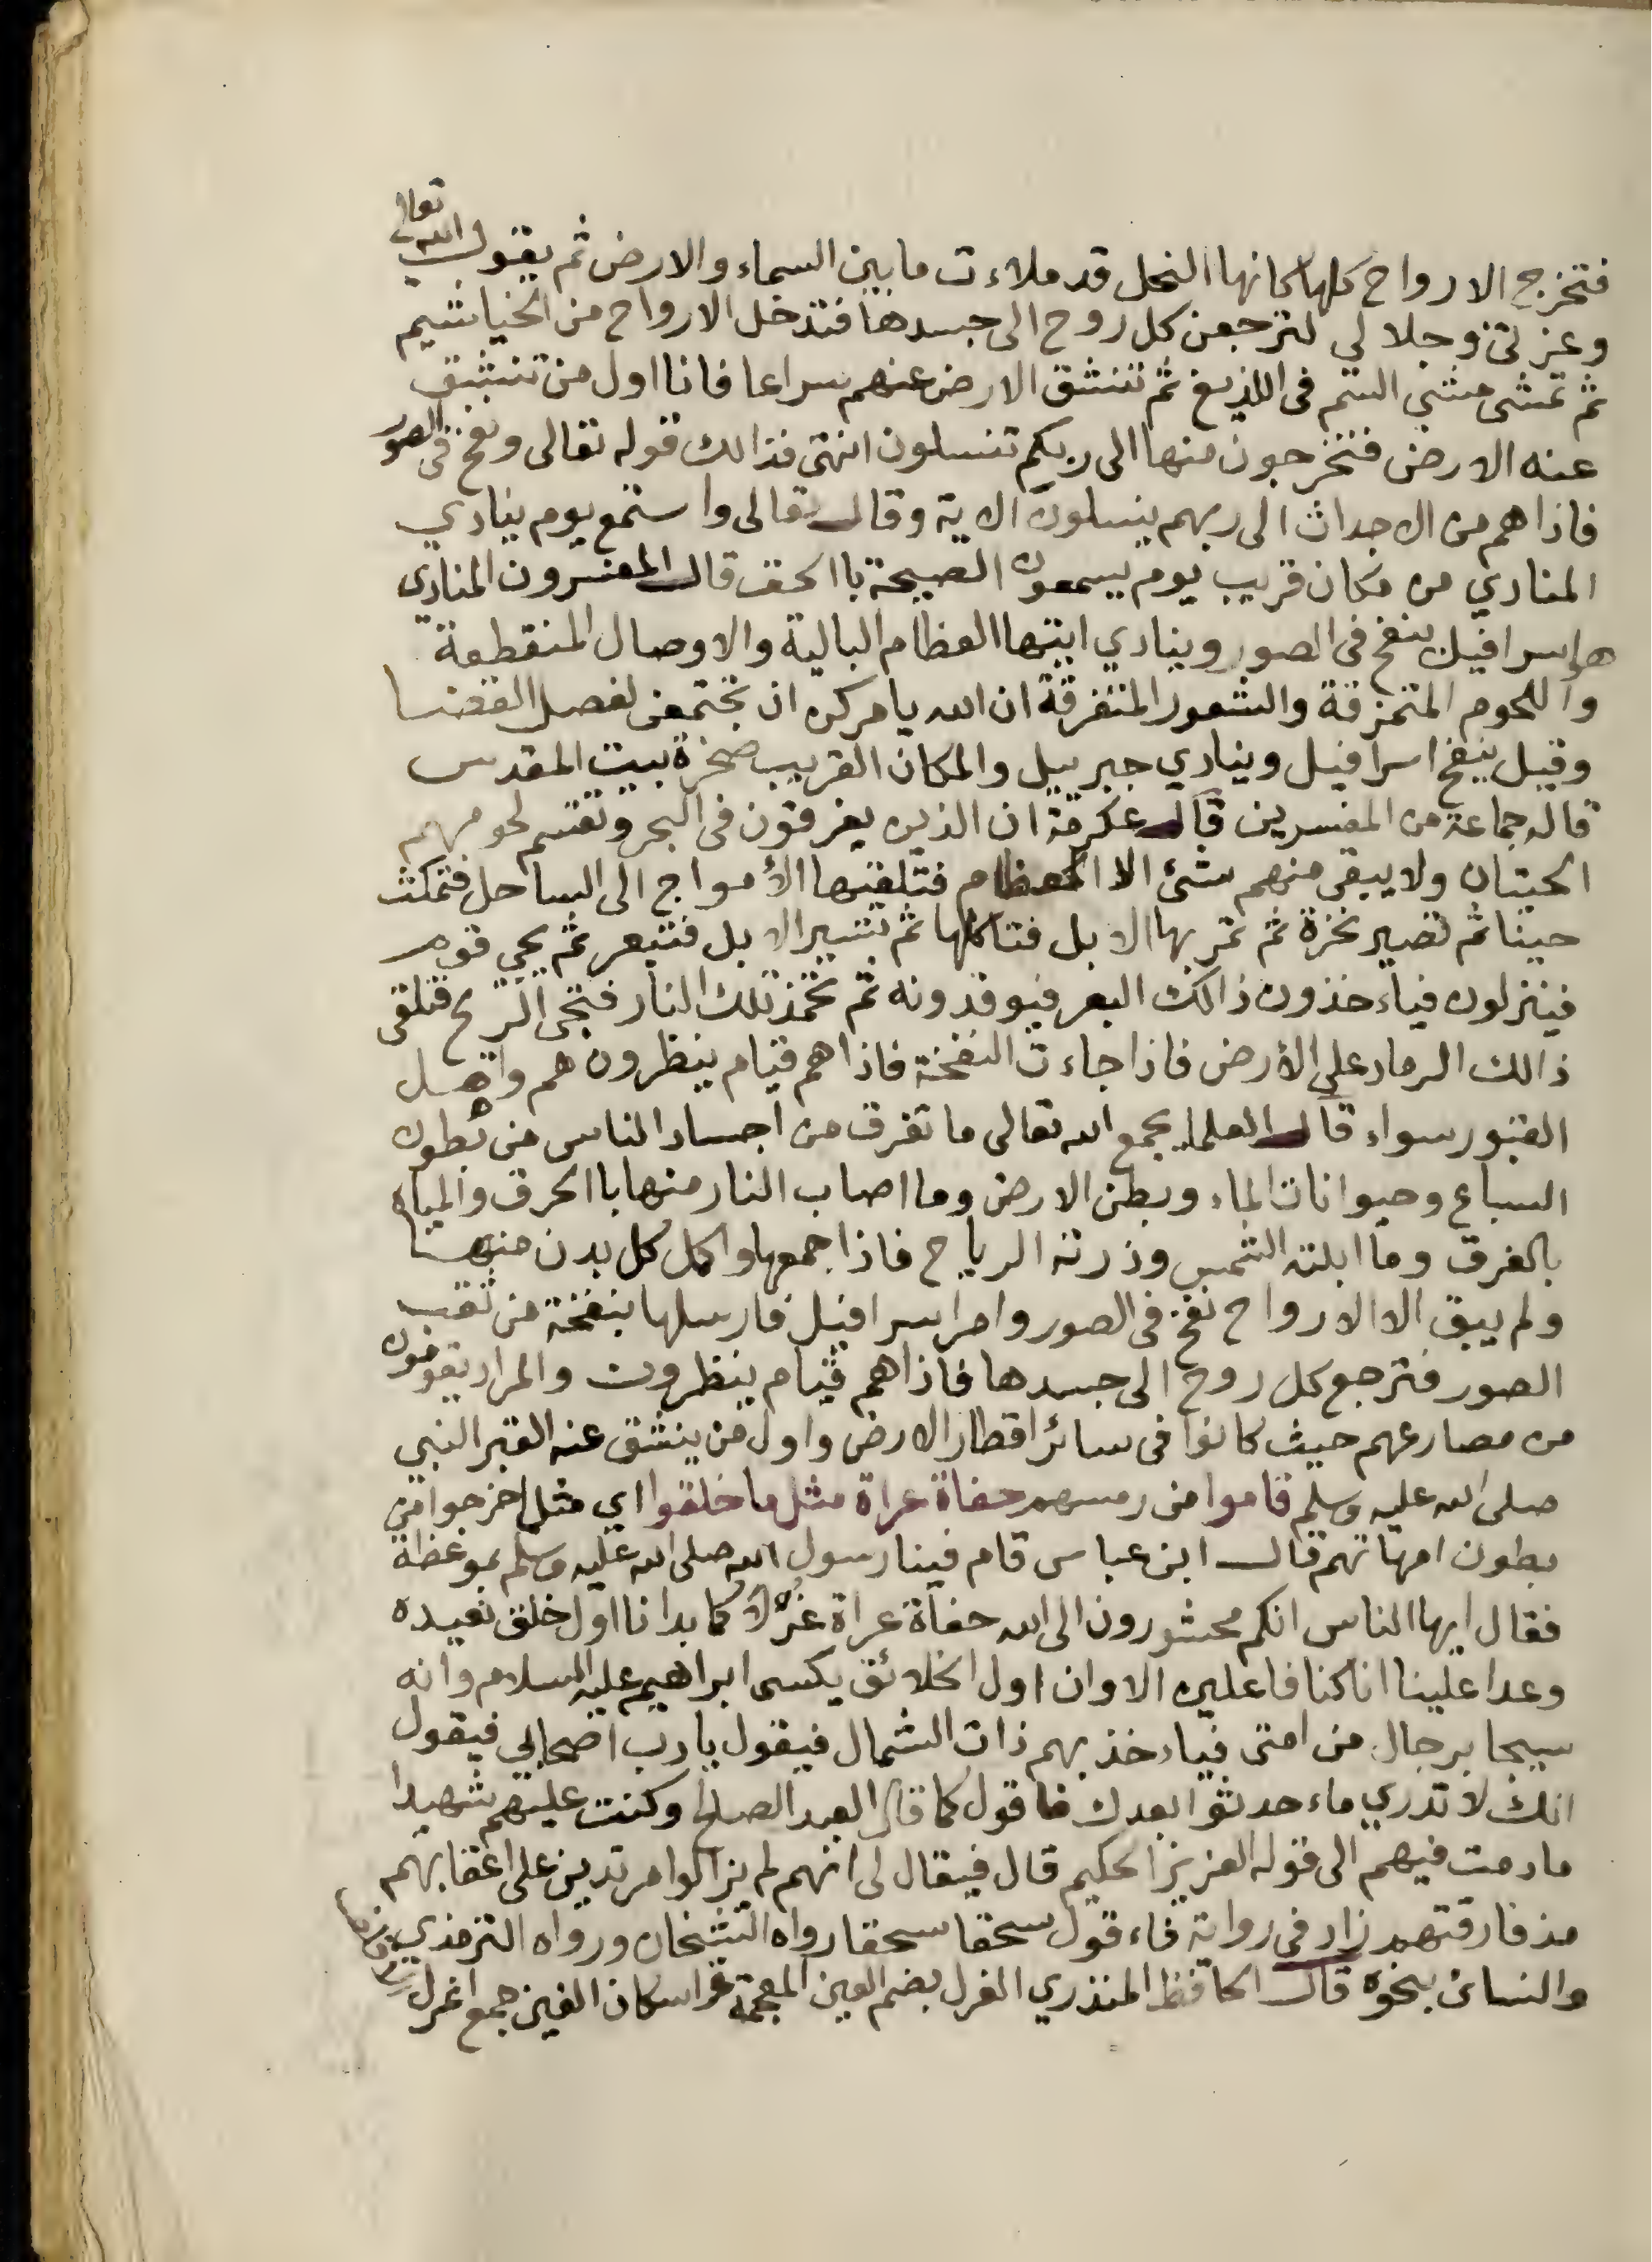 فتخرج الارواح كلها كانها النحل قد ملاءت ما بين السماء والارض ثم يقول الله تعالى
وعزتي وجلالي لترجعن كل روح الى جسدها فتدخل الارواح من الخياشيم
ثم تمشى مشي السم فى اللذيغ ثم تنشق الارض عنهم سراعا فانا اول من تنشق
عنه الارض فتخرجون منها الى ربكم تنسلون انتهى فذالك قوله تعالى ونفخ فى الصور
فاذا هم من الاجداث الى ربهم ينسلون الاية وقال تعالى واستمع يوم ينادي
المنادي من مكان قريب يوم يسمعون الصيحة باالحق قال المفسرون المنادي
هو اسرافيل ينفخ فى الصور وينادي ايتها العظام البالية والاوصال المنقطعة
واللحوم المتمزقة والشعور المتفرقة ان الله يامركن ان تجتمعن لفصل القضا
وقيل ينفخ اسرافيل وينادي جبرييل والمكان القريب صخرة بيت المقدس
قاله جماعة من المفسرين قال عكرمة ان الذين يغرقون فى البحر وتقسم لحومهم
الحيتان ولا يبقى منهم شئ الا العظام فتلقيها الأمواج الى الساحل فتمكث
حينا ثم تصير نخرة ثم تمر بها الابل فتاكلها ثم تسير الابل فتبعر ثم يجي قوم
فينزلون فياءخذون ذالك البعر فيوقدونه ثم تخمد تلك النار فتجى الريح فتلقى
ذالك الرماد على الأرض فاذا جاءت النفخة فاذا هم قيام ينظرون هم واهل
القبور سواء قال العلماء يجمع الله تعالى ما تفرق من اجساد الناس من بطون
السباع وحيوانات الماء وبطن الارض وما اصاب النار منها باالحرق والمياه
بالغرق وما ابلته الشمس وذرته الرياح فاذا جمعها واكمل كل بدن منها
ولم يبق الا الارواح نفخ فى الصور وامر اسرافيل فارسلها بنفخة من ثقب
الصور فترجع كل روح الى جسدها فاذاهم قيام ينظرون والمراد يقومون
من مصارعهم حيث كانوا فى سائر اقطار الارض واول من ينشق عنه القبر النبي
صلى الله عليه وسلم قاموا من رمسهم حفاة عراة مثل ما خلقوا اي مثل اخرجوا من
بطون امهاتهم قال ابن عباس قام فينا رسول الله صلى الله عليه وسلم بموعظة
فقال ايها الناس انكم محشورون الى الله حفاة عراة غرلا كما بدانا اول خلق نعيده
وعدا علينا انا كنا فاعلين الا وان اول الخلائق يكسى ابراهيم عليه السلام وانه
سيجا برجال من امتى فياءخذ بهم ذات الشمال فيقول يا رب اصحابي فيقول
انك لا تدري ماءحدثوا بعدك فاقول كما قال العبد الصالح وكنت عليهم شهيدا
مادمت فيهم الى قوله العزيز الحكيم قال فيقال لى انهم لم يزالوا مرتدين على اعقابهم
مذ فارقتهم زاد فى رواية فاءقول سحقا سحقا رواه الشيخان ورواه الترمذي
والنسائ بنحوه قال الحافظ المنذري الغرل بضم الغين المعجمة واسكان الغين جمع اغرل